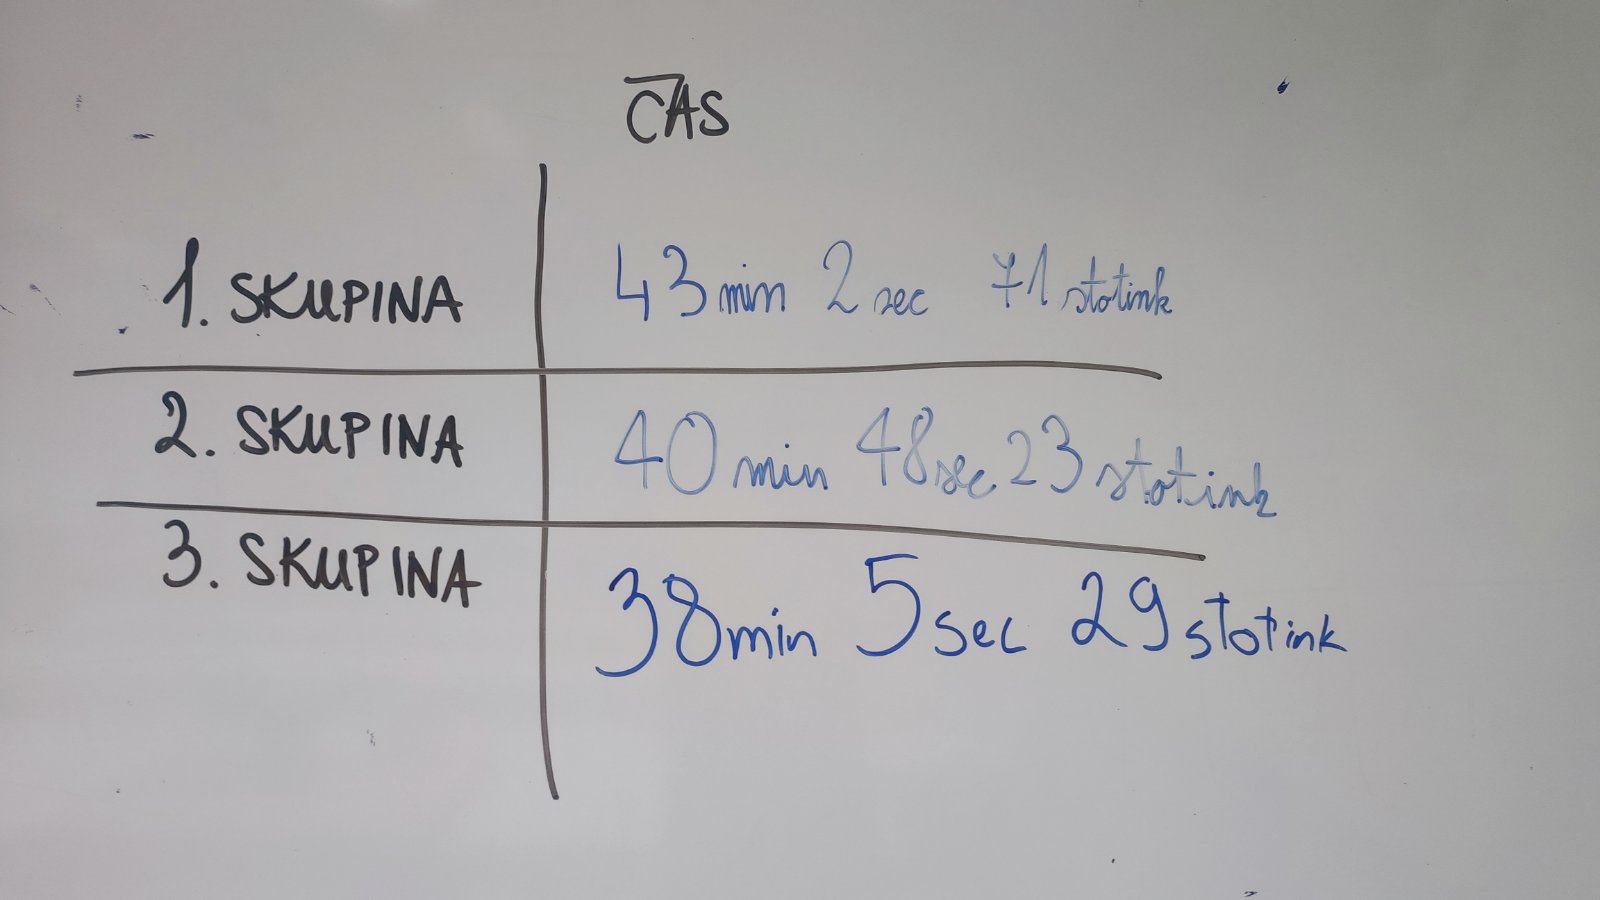 ČAS
1. SKUPINA 43 min 2 sec 71 stotink
2. SKUPINA 40 min 48 sec 23 stotink
3. SKUPINA 38 min 5 sec 29 stotink